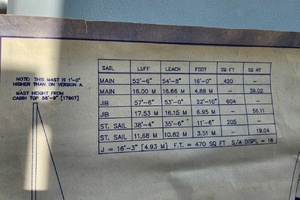 NOTE: THIS MAST IS 1'-0"
HIGHER THAN ON VERSION A.
MAST HEIGHT FROM
CABIN TOP 56'-9" [17907]
SAIL LUFF LEACH FOOT SQ FT SQ MT
MAIN 52'-6" 54'-8" 16'-0" 420 -
MAIN 16.00 M 16.66 M 4.88 M - 39.02
JIB 57'-6" 53'-0" 22'-10" 604 -
JIB 17.53 M 16.15 M 6.95 M - 56.11
ST. SAIL 38'-4" 35'-6" 11'-6" 205 -
ST. SAIL 11.68 M 10.82 M 3.51 M - 19.04
J = 16'-3" [4.93 M] F.T. = 470 SQ FT S/A DISPL = 16